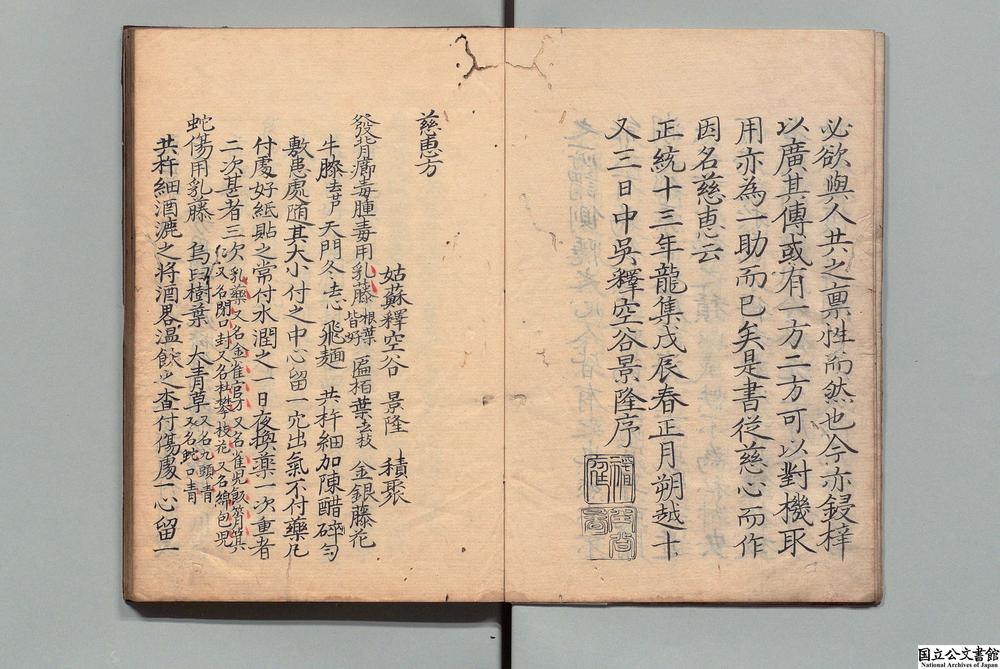 必欲與人共之稟性而然也今亦鋟梓
以廣其傳或有一方二方可以對機取
用亦為一助而已矣是書從慈心而作
因名慈惠云
正統十三年龍集戊辰春正月朔越十
又三日中吳釋空谷景隆序
慈惠方
姑蘇釋空谷 景隆 積聚
發背癤毒腫毒用乳藤根葉皆好 匾栢葉去枝 金銀藤花
牛膝去芦 天門冬去心 飛麺 共杵細加陳醋研勻
敷患處随其大小付之中心留一穴出氣不付藥凡
付處好紙貼之常付水潤之一日夜換藥一次重者
二次甚者三次乳藥又名金雀官才又名雀児飯筲箕
又名閉口封又名杜攀枝花又名綿包児
蛇傷用乳藤 烏臼樹葉 大青草又名九頭青又名蛇口青
共杵細酒漉之将酒畧温飲之查付傷處一心留一
国立公文書館
National Archives of Japan